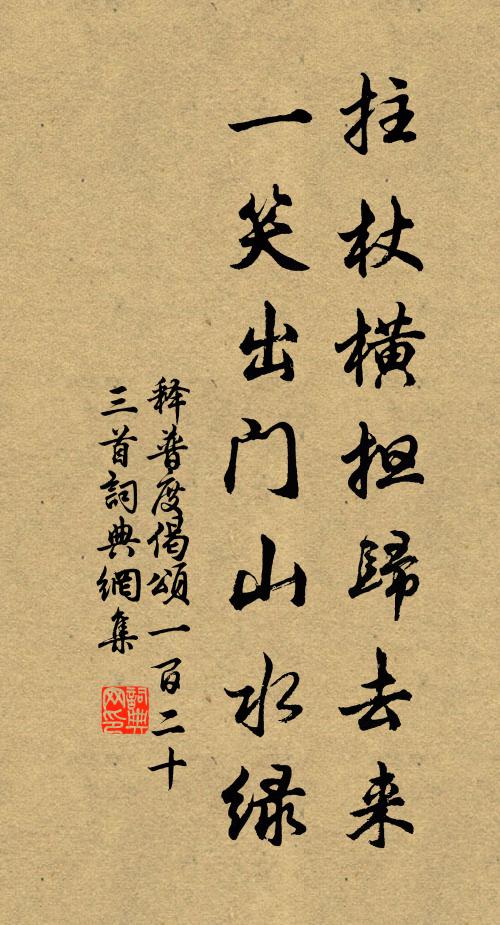 拄杖横担歸去来
一笑出门山水绿
释普度偈頌一百二十
三首詞典網集
詞典网印